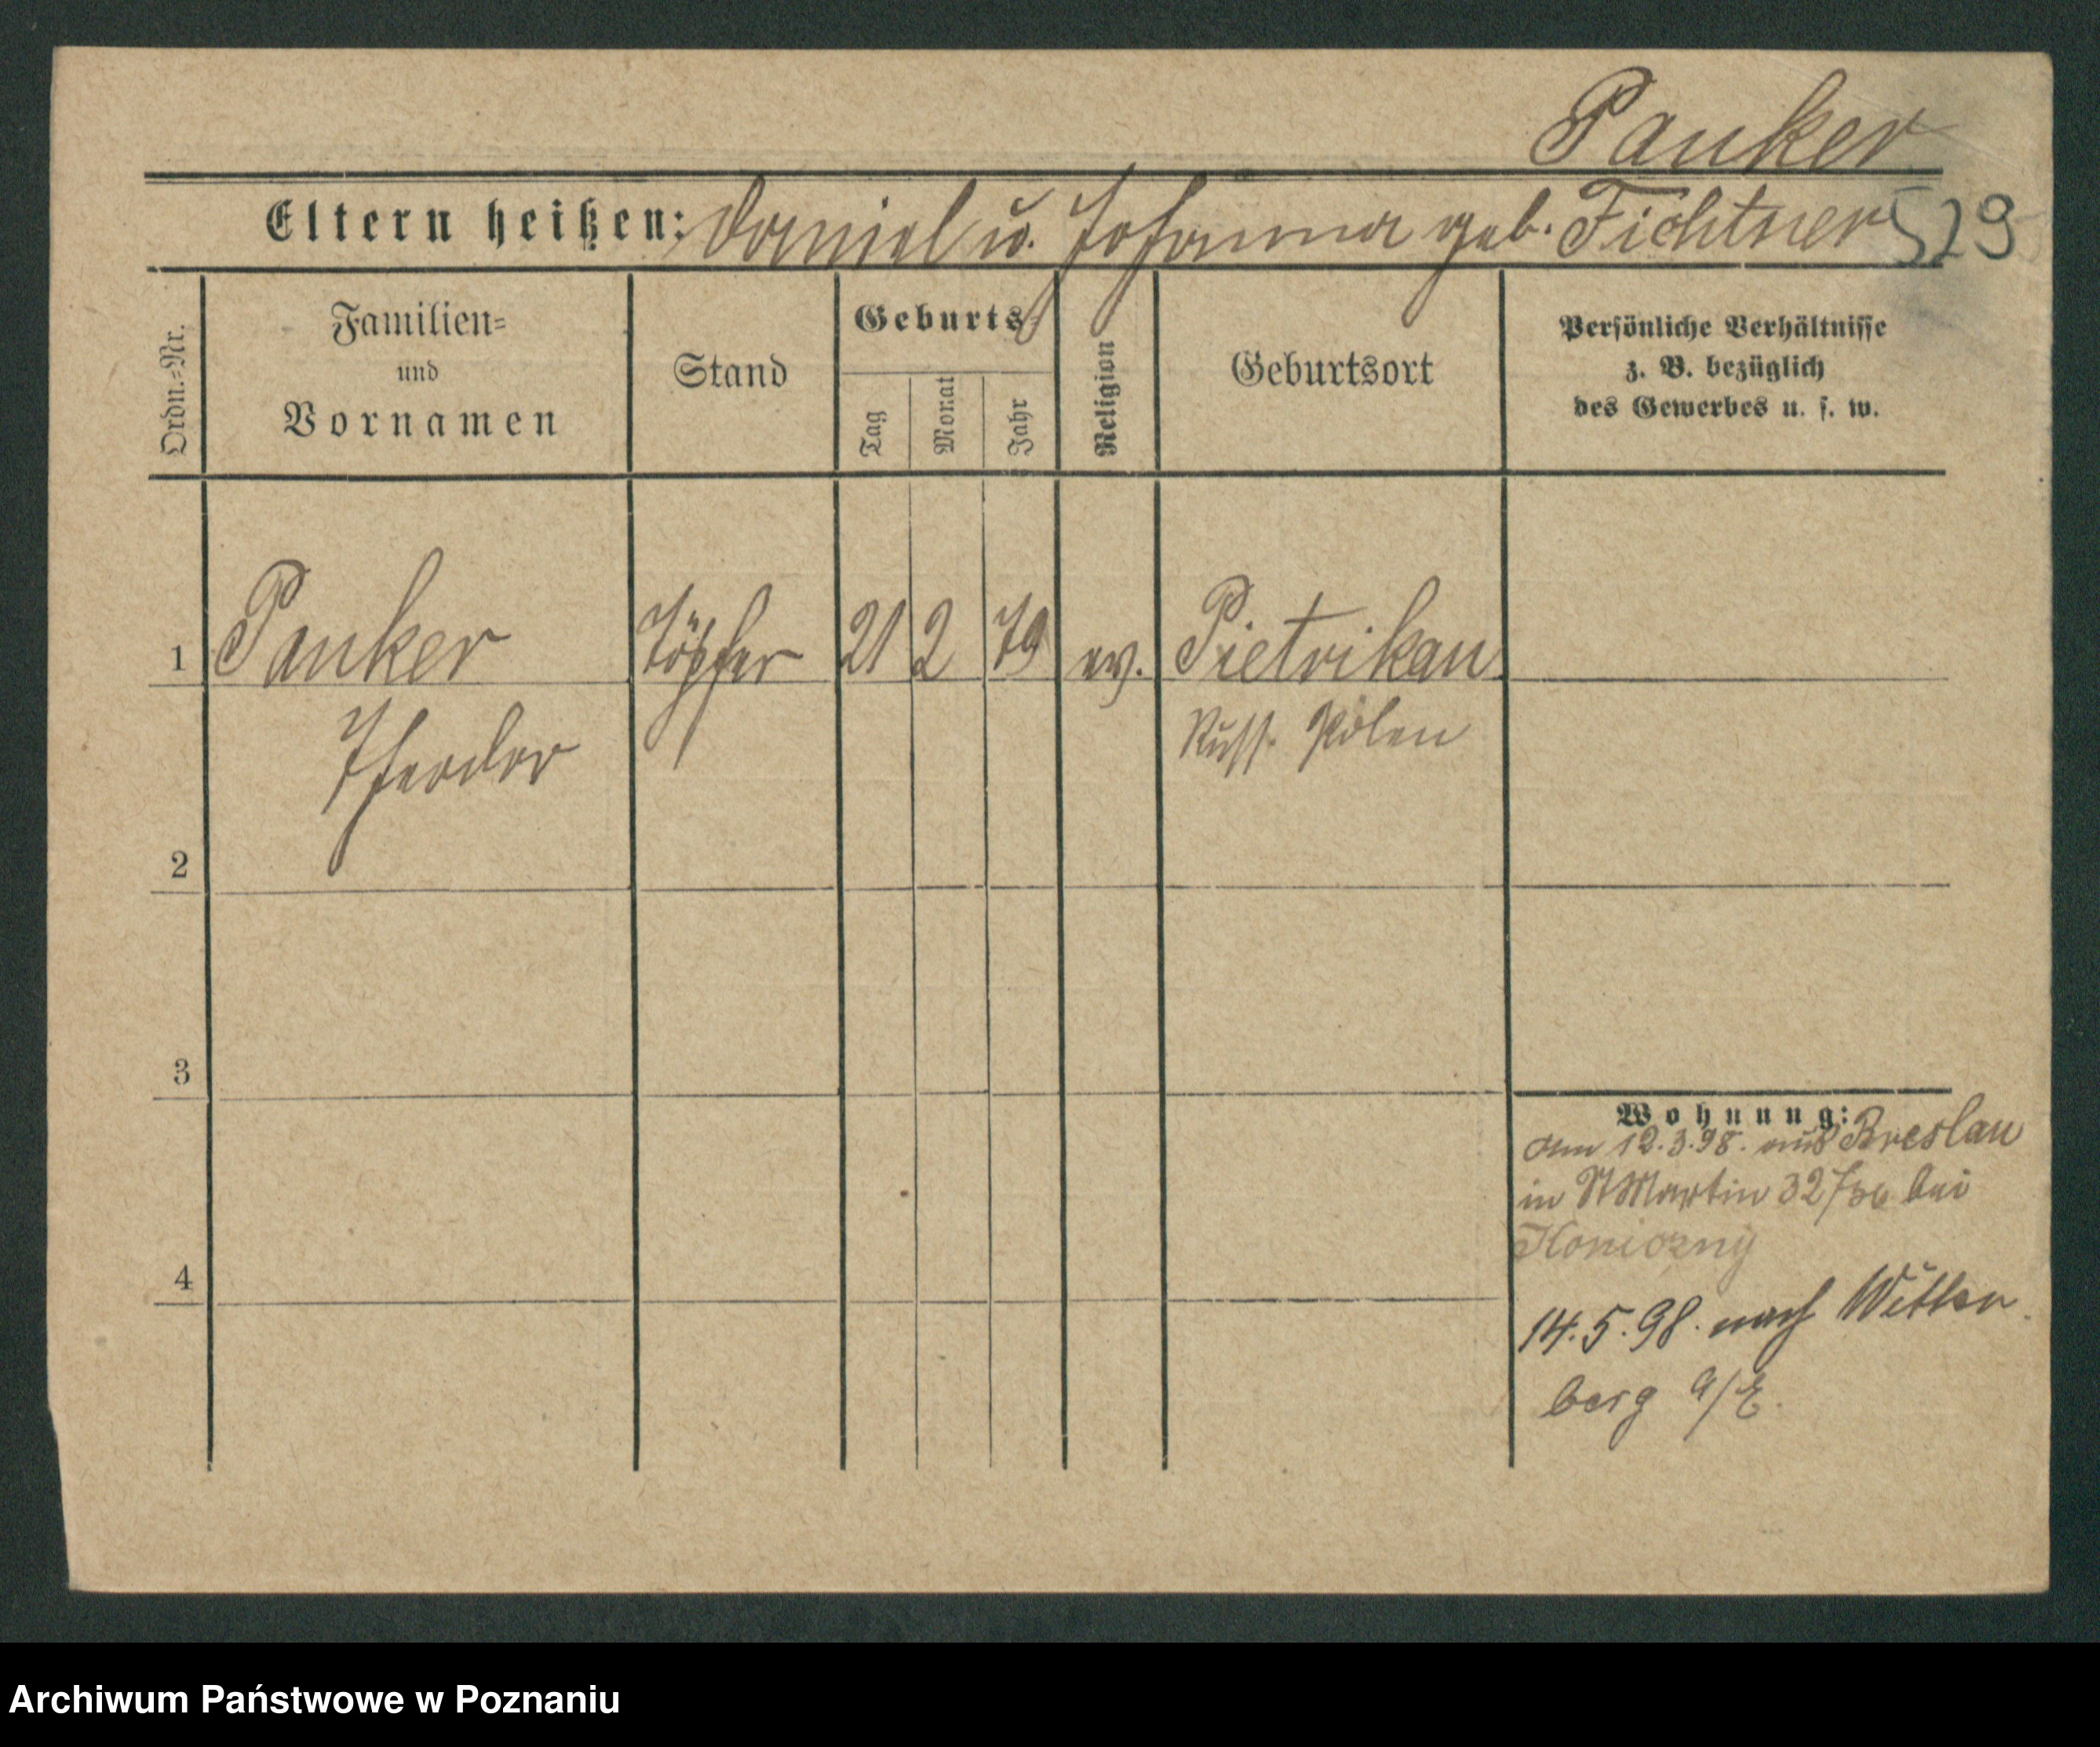 Panker
Eltern heißen: Daniel u. Johanna geb. Fichtner 529
Ordn.-Nr.
Familien-
und
Vornamen
Stand
Geburts-
Tag
Monat
Jahr
Religion
Geburtsort
Persönliche Verhältnisse
z. B. bezüglich
des Gewerbes u. s. w.
1 Panker Töpfer 21 2 79 ev. Pietrikau
Theodor Russ. Polen
2
3
Wohnung:
am 12.3.98. aus Breslau
in St Martin 32 bei
Koniczny
4
14.5.98. nach Witten
berg a/E.
Archiwum Państwowe w Poznaniu